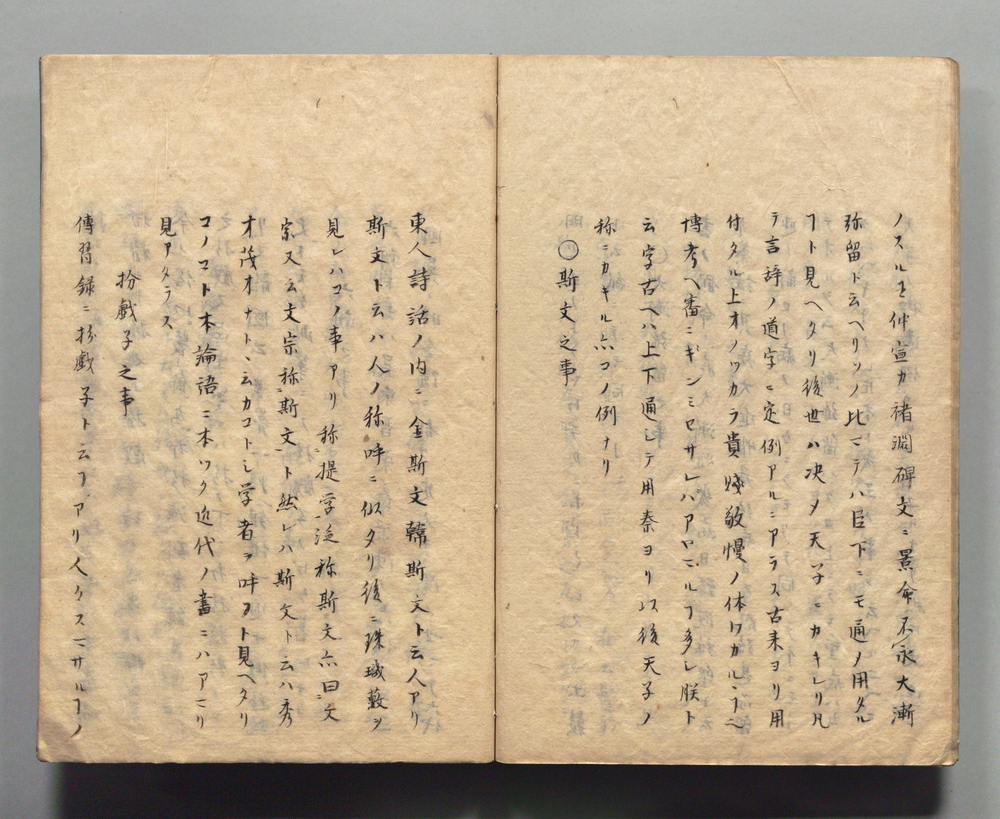 ノスル王仲宣カ褚淵碑文ニ景命不永大漸
弥留ト云ヘリソノ比マテハ臣下ニモ通ノ用タル
ヿト見ヘタリ後世ハ决メ天子ニカキレリ凡
テ言辞ノ道字ニ定例アルニアラス古来ヨリ用
付タル上オノツカラ貴賎敬慢ノ体ワカルヽナリ
博考ヘ審ニギンミセサレハアヤマルヿ多シ朕ト
云字古ヘハ上下通シテ用秦ヨリ以後天子ノ
称ニカキル亦コノ例ナリ
○斯文之事
東人詩話ノ内ニ金斯文韓斯文ト云人アリ
斯文ト云ハ人ノ称呼ニ似タリ後ニ珠璣藪ヲ
見レハコノ事アリ称提学
称斯文亦曰文
宗又云文宗称斯文ト然レハ斯文ト云ハ秀
才茂才ナトヽ云カコトシ学者ヲ呼ヿト見ヘタリ
コノコト本論語ニ本ツク近代ノ書ニハアマリ
見アタラス
扮戯子之事
傳習録ニ扮戯子ト云フアリ人クスマサルヿノ